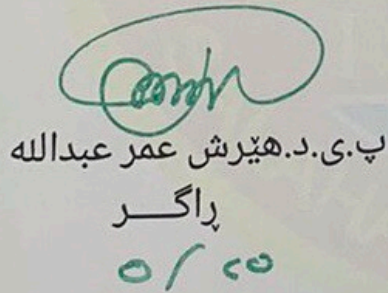 پ.ی.د.هێرش عمر عبدالله
ڕاگــــر
٥ / ٢٥